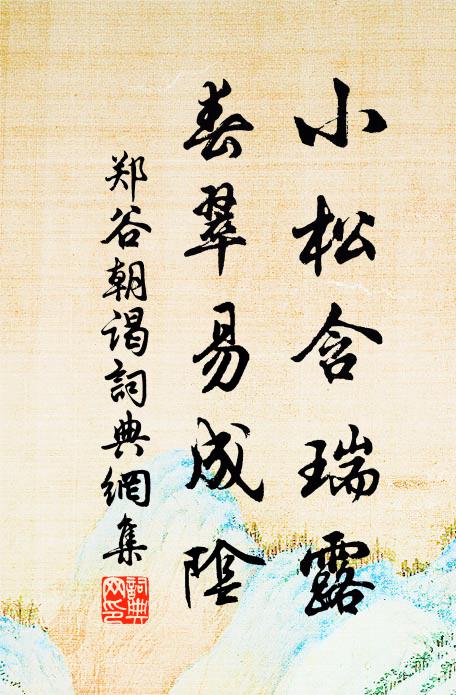 小松含瑞露
春翠易成陰
郑谷朝谒詞典網集
詞典网印